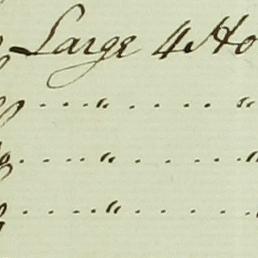 Large 4 Ho
.... " .... "
.... " .... "
.... " .... "